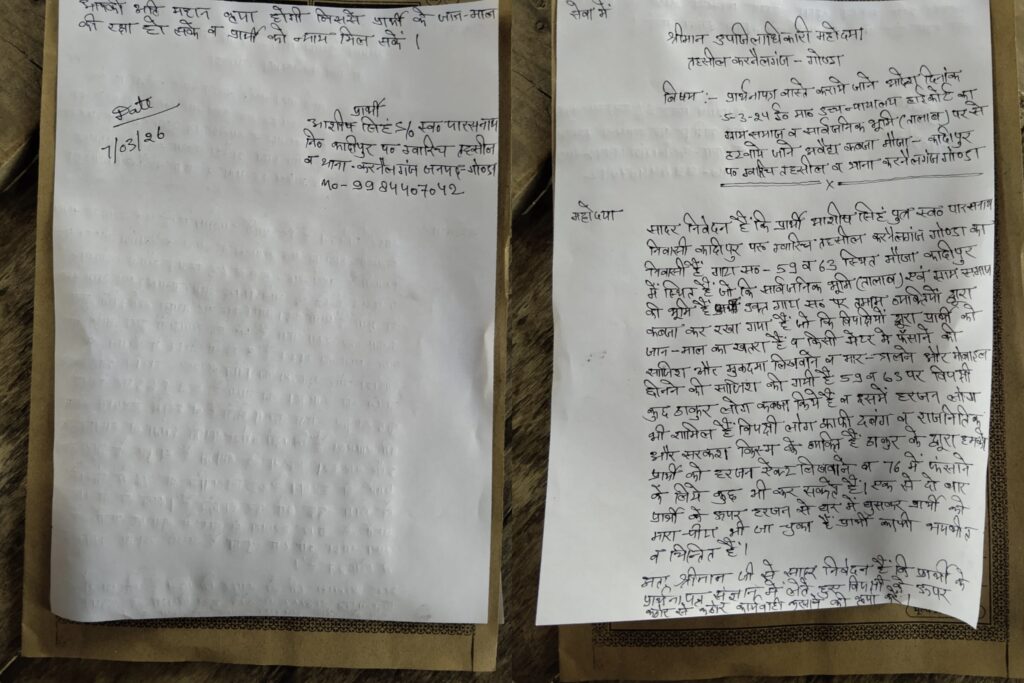 सेवा में
श्रीमान उपजिलाधिकारी महोदया
तहसील करनैलगंज - गोण्डा
विषय :- प्रार्थनापत्र वास्ते कराये जाने आदेश दिनांक
5-3-24 ई० मा० उच्च न्यायालय हाईकोर्ट का
ग्राम समाज व सार्वजनिक भूमि (तालाब) पर से
हटवाये जाने अवैध कब्जा मौजा - कादीपुर
प० ग्वारिच तहसील व थाना करनैलगंज गोण्डा
x
महोदया
सादर निवेदन है कि प्रार्थी आशीष सिंह पुत्र स्व० पारसनाथ
निवासी कादीपुर पर० ग्वारिच तहसील करनैलगंज गोण्डा का
निवासी है गाटा स० - 59 व 63 स्थित मौजा कादीपुर
में स्थित है जो कि सार्वजनिक भूमि (तालाब) एवं ग्राम समाज
की भूमि है उक्त गाटा स० पर तमाम व्यक्तियों द्वारा
कब्जा कर रखा गया है जो कि विपक्षियों द्वारा प्रार्थी को
जान-माल का खतरा है व किसी मैटर मे फँसाने की
साजिश और मुकदमा लिखवाने व मार- और मोबाइल
छीनने की साजिश की गयी है 59 व 63 पर विपक्षी
कुछ ठाकुर लोग कब्जा किये है व इसमें हरजन लोग
भी शामिल है विपक्षी लोग काफी दबंग व राजनितिक
और सरकश किस्म के व्यक्ति है ठाकुर के द्वारा हमको
प्रार्थी को हरजन ऐक्ट लिखवाने व 76 में फंसाने
के लिये कुछ भी कर सकते है। एक से दो बार
प्रार्थी के ऊपर हरजन से घर में घुसकर प्रार्थी को
मारा-पीटा भी जा चुका है प्रार्थी काफी भयभीत
व चिन्तित है।
अतः श्रीमान जी से सादर निवेदन है कि प्रार्थी के
प्रार्थना पत्र संज्ञान में लेते हुए विपक्षी के ऊपर
कठोर से कठोर कार्यवाही करवाने की कृपा करें
आपकी अति महान कृपा होगी जिससे प्रार्थी के जान-माल
की रक्षा हो सके व प्रार्थी को न्याय मिल सकें।
Date
7/03/26
प्रार्थी
आशीष सिंह S/o स्व० पारसनाथ
नि० कादीपुर प० ग्वारिच तहसील
व थाना - करनैलगंज जनपद - गोण्डा
Mo- 9984407042